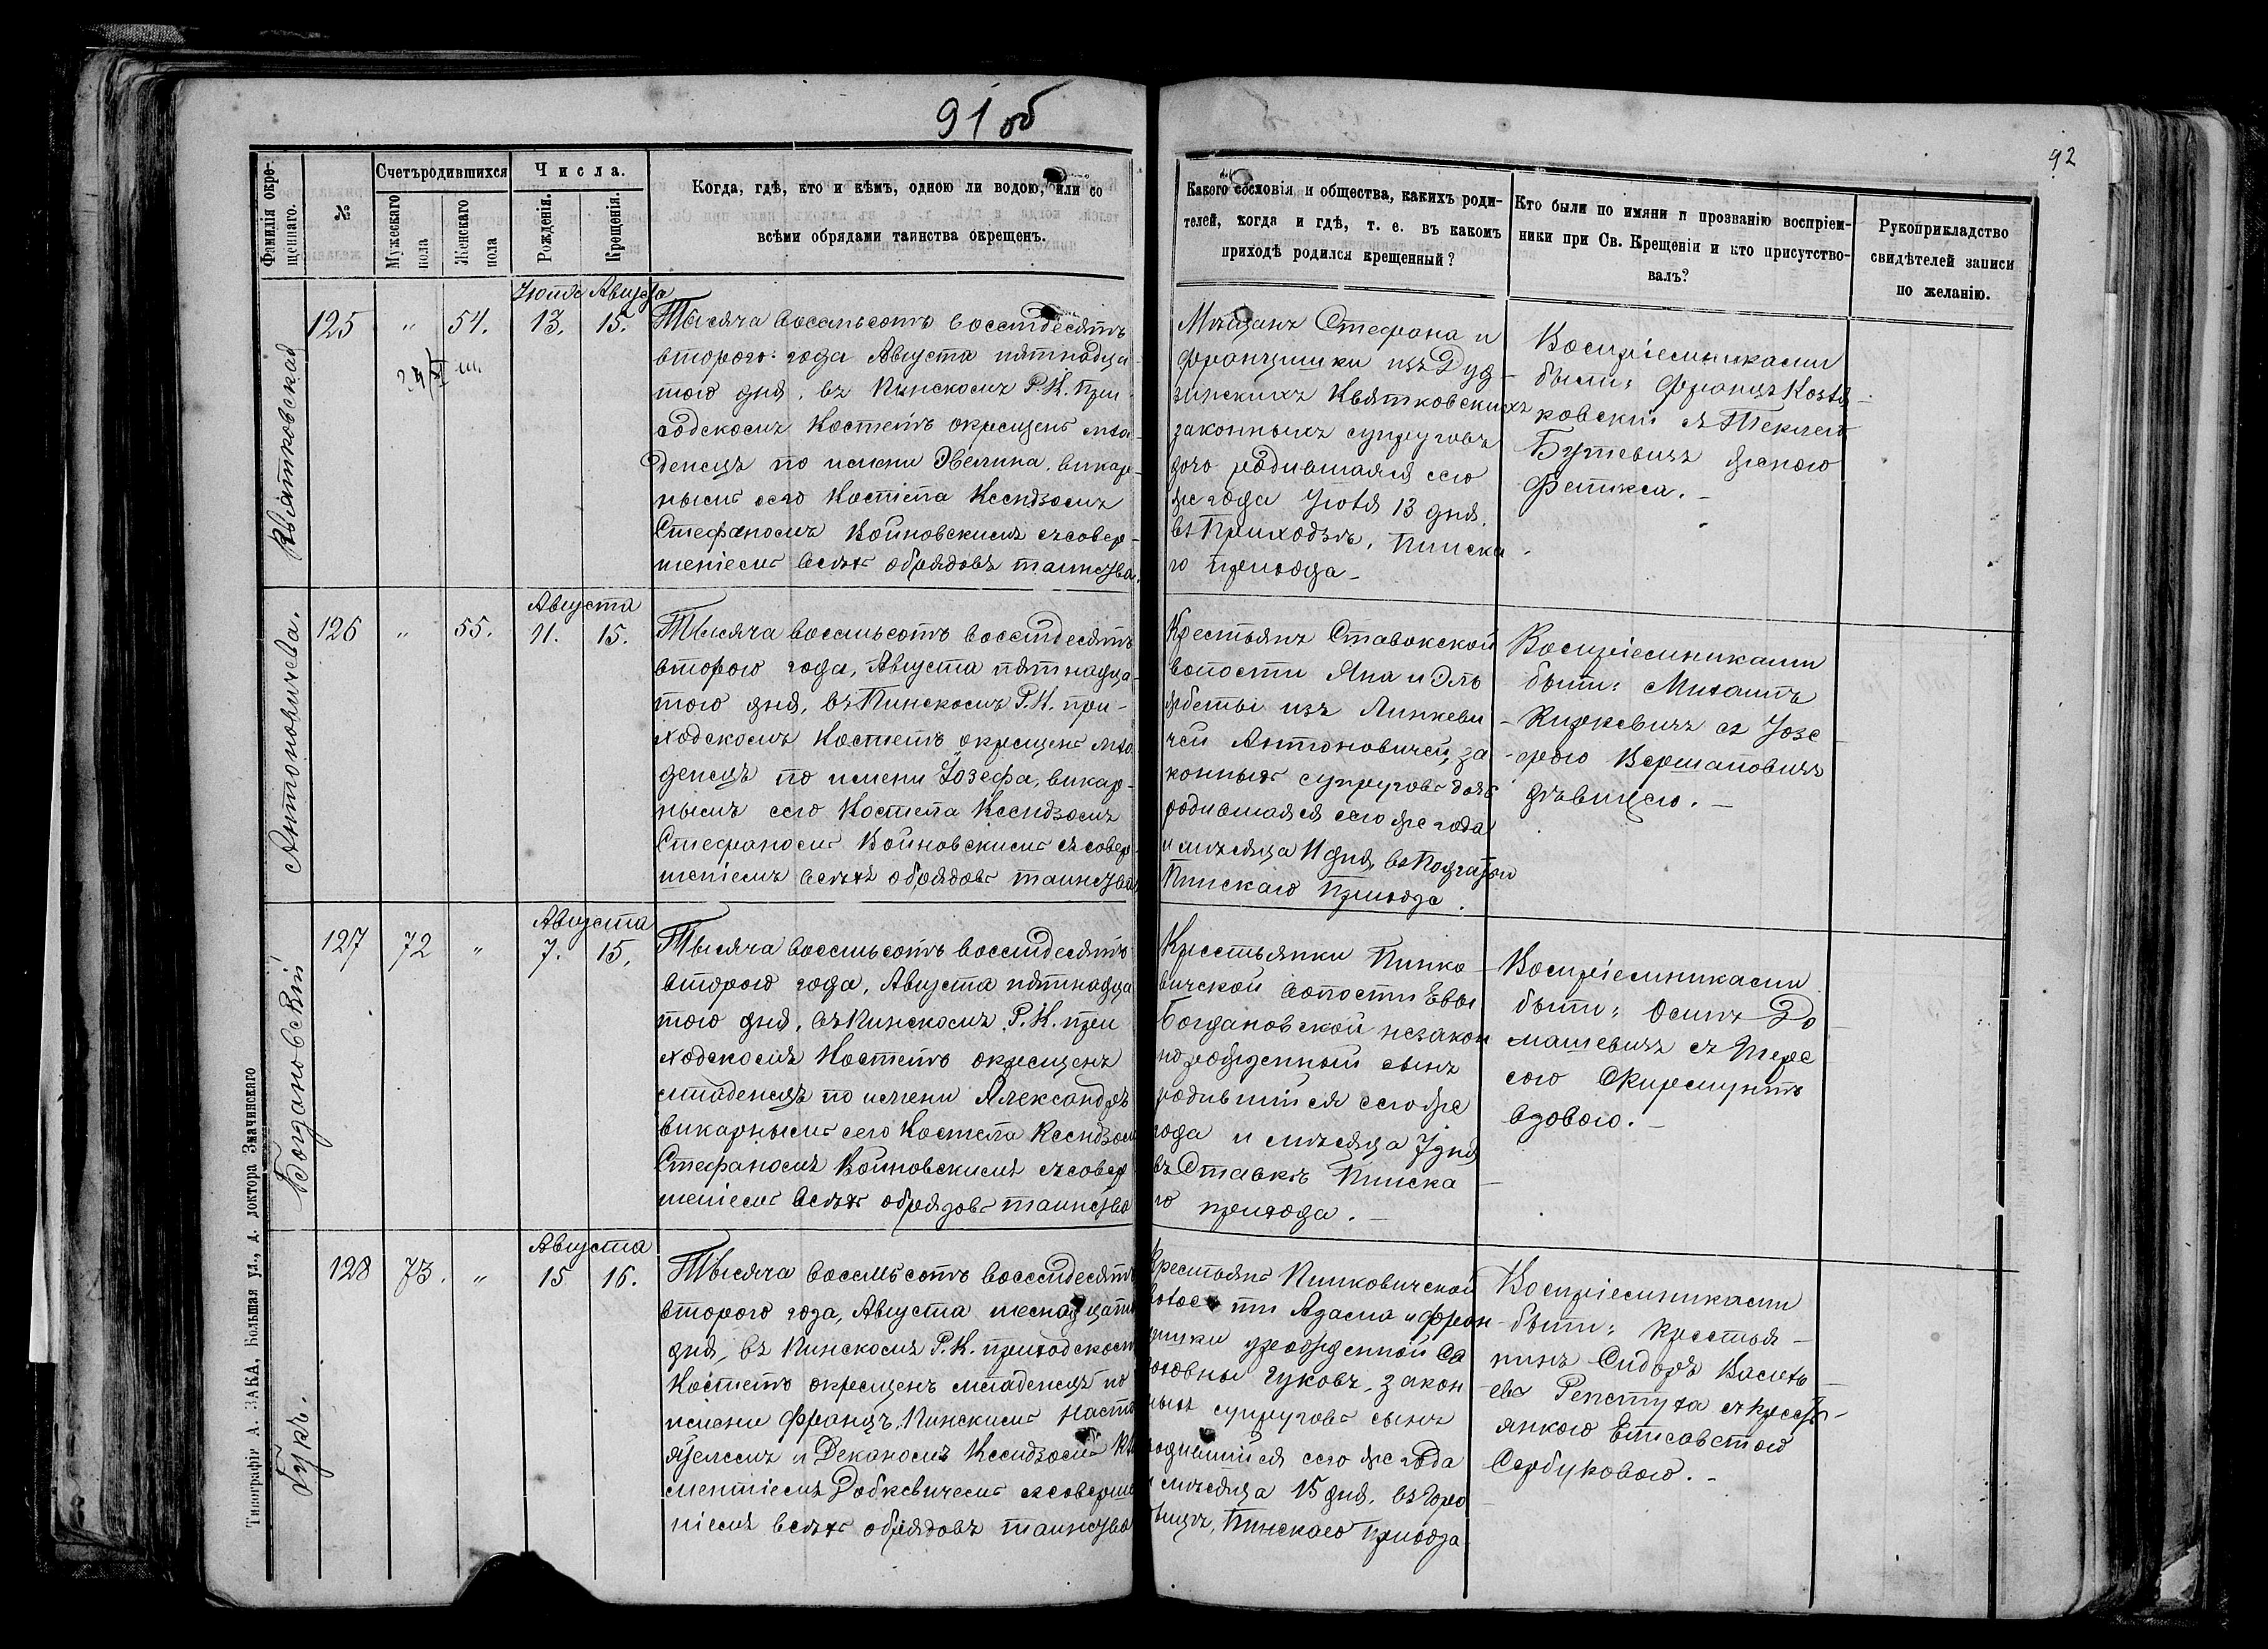 91 об
92
Фамилія окре-
щеннаго.
№
Счетъ родившихся
Мужескаго
пола
Женскаго
пола
Числа.
Рожденія.
Крещенія.
Когда, гдѣ, кто и кѣмъ, одною ли водою, или со
всѣми обрядами таинства окрещенъ.
Какого сословія и общества, какихъ роди-
телей, когда и гдѣ, т. е. въ какомъ
приходѣ родился крещенный?
Кто были по имяни и прозванію воспріем-
ники при Св. Крещеніи и кто присутство-
валъ?
Рукоприкладство
свидѣтелей записи
по желанію.
Квятковская
125 " 54. 13. 15.
Іюля Августа
Тысяча восемьсотъ восемдесятъ
втораго года Августа пятнадца-
того дня, въ Пинскомъ Р. К. При-
ходскомъ Костелѣ окрещенъ мла-
денецъ по имени Эвелина, викар-
нымъ сего Костела Ксендзомъ
Стефаномъ Войновскимъ съ совер-
шеніемъ всѣхъ обрядовъ таинства.
Мѣщанъ Стефана и
Францишки изъ Дуд-
зинскихъ Квятковскихъ
законныхъ супруговъ
дочь родившаяся сего
же года Іюля 13 дня.
въ Пинска-
го прихода
Воспріемниками
были: Францъ Козля-
ковскій съ Теклею
Бутевичъ женою
Феликса.
Антоновичева.
Августа
126 " 55. 11. 15.
Тысяча восемьсотъ восемдесятъ
второго года, Августа пятнадца-
того дня, въ Пинскомъ Р. К. при-
ходскомъ Костелѣ окрещенъ мла-
денецъ по имени Іозефа, викар-
нымъ сего Костела Ксендзомъ
Стефаномъ Войновскимъ съ совер-
шеніемъ всѣхъ обрядовъ таинства
Крестьянъ Ставокской
волости Яна и Эль
жбеты изъ Линкеви
чей Антоновичей, за
конныхъ супруговъ дочь
родившаяся сего же года
и мѣсяца 11 дня, въ
Пинскаго Прихода.
Воспріемниками
были: Михаилъ
съ Іозе
фою
дѣвицею.
Богдановскій
Августа
127 72 " 7. 15.
Тысяча восемьсотъ восемдесятъ
втораго года, Августа пятнадца
того дня, въ Пинскомъ Р. К. при
ходскомъ Костелѣ окрещенъ
младенецъ по имени Александръ
викарнымъ сего Костела Ксендзомъ
Стефаномъ Войновскимъ съ совер
шеніемъ всѣхъ обрядовъ таинства
Крестьянки Пинко-
вичской волости Евы
Богдановской незакон
но рожденный сынъ
родившійся сего же
года и мѣсяца 7 дня
въ Ставкѣ Пинска-
го прихода.
Воспріемниками
были: Осипъ До
машевичъ съ Тере
сою Скирмунтъ
вдовою.
Гукъ.
Августа
128 73. " 15 16.
Тысяча восемьсотъ восемдесятъ
второго года, Августа шеснадцатого
дня, въ Пинскомъ Р. К. приходскомъ
Костелѣ окрещенъ младенецъ по
имени Францъ, Пинскимъ Насто
ятелемъ и Деканомъ Ксендзомъ Кли
ментіемъ Добкевичемъ съ соверше
ніемъ всѣхъ обрядовъ таинства
Крестьянъ Пинковичской
волости Адама и Фран-
цишки урожденной
Гуковъ, закон
ныхъ супруговъ сынъ
родившійся сего же года
и мѣсяца 15 дня, въ
Пинскаго Прихода
Воспріемниками
были: Крестья-
нинъ Сидоръ Василь-
евъ съ Крестъ-
янкою Елисаветою
Сербуковою.
Типографія А. ЗАКА, Большая ул., д. доктора Значинскаго